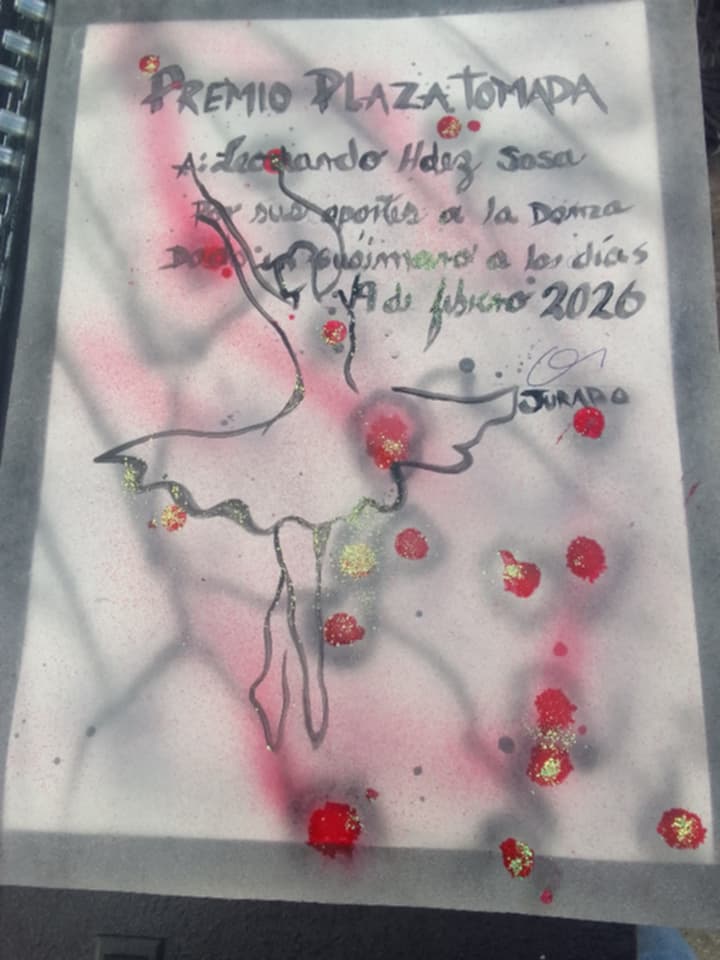 PREMIO PLAZA TOMADA
A: Leonardo Hdez Sosa
Por sus aportes a la Danza
Dado en Guáimaro a los días
19 de febrero 2026
JURADO